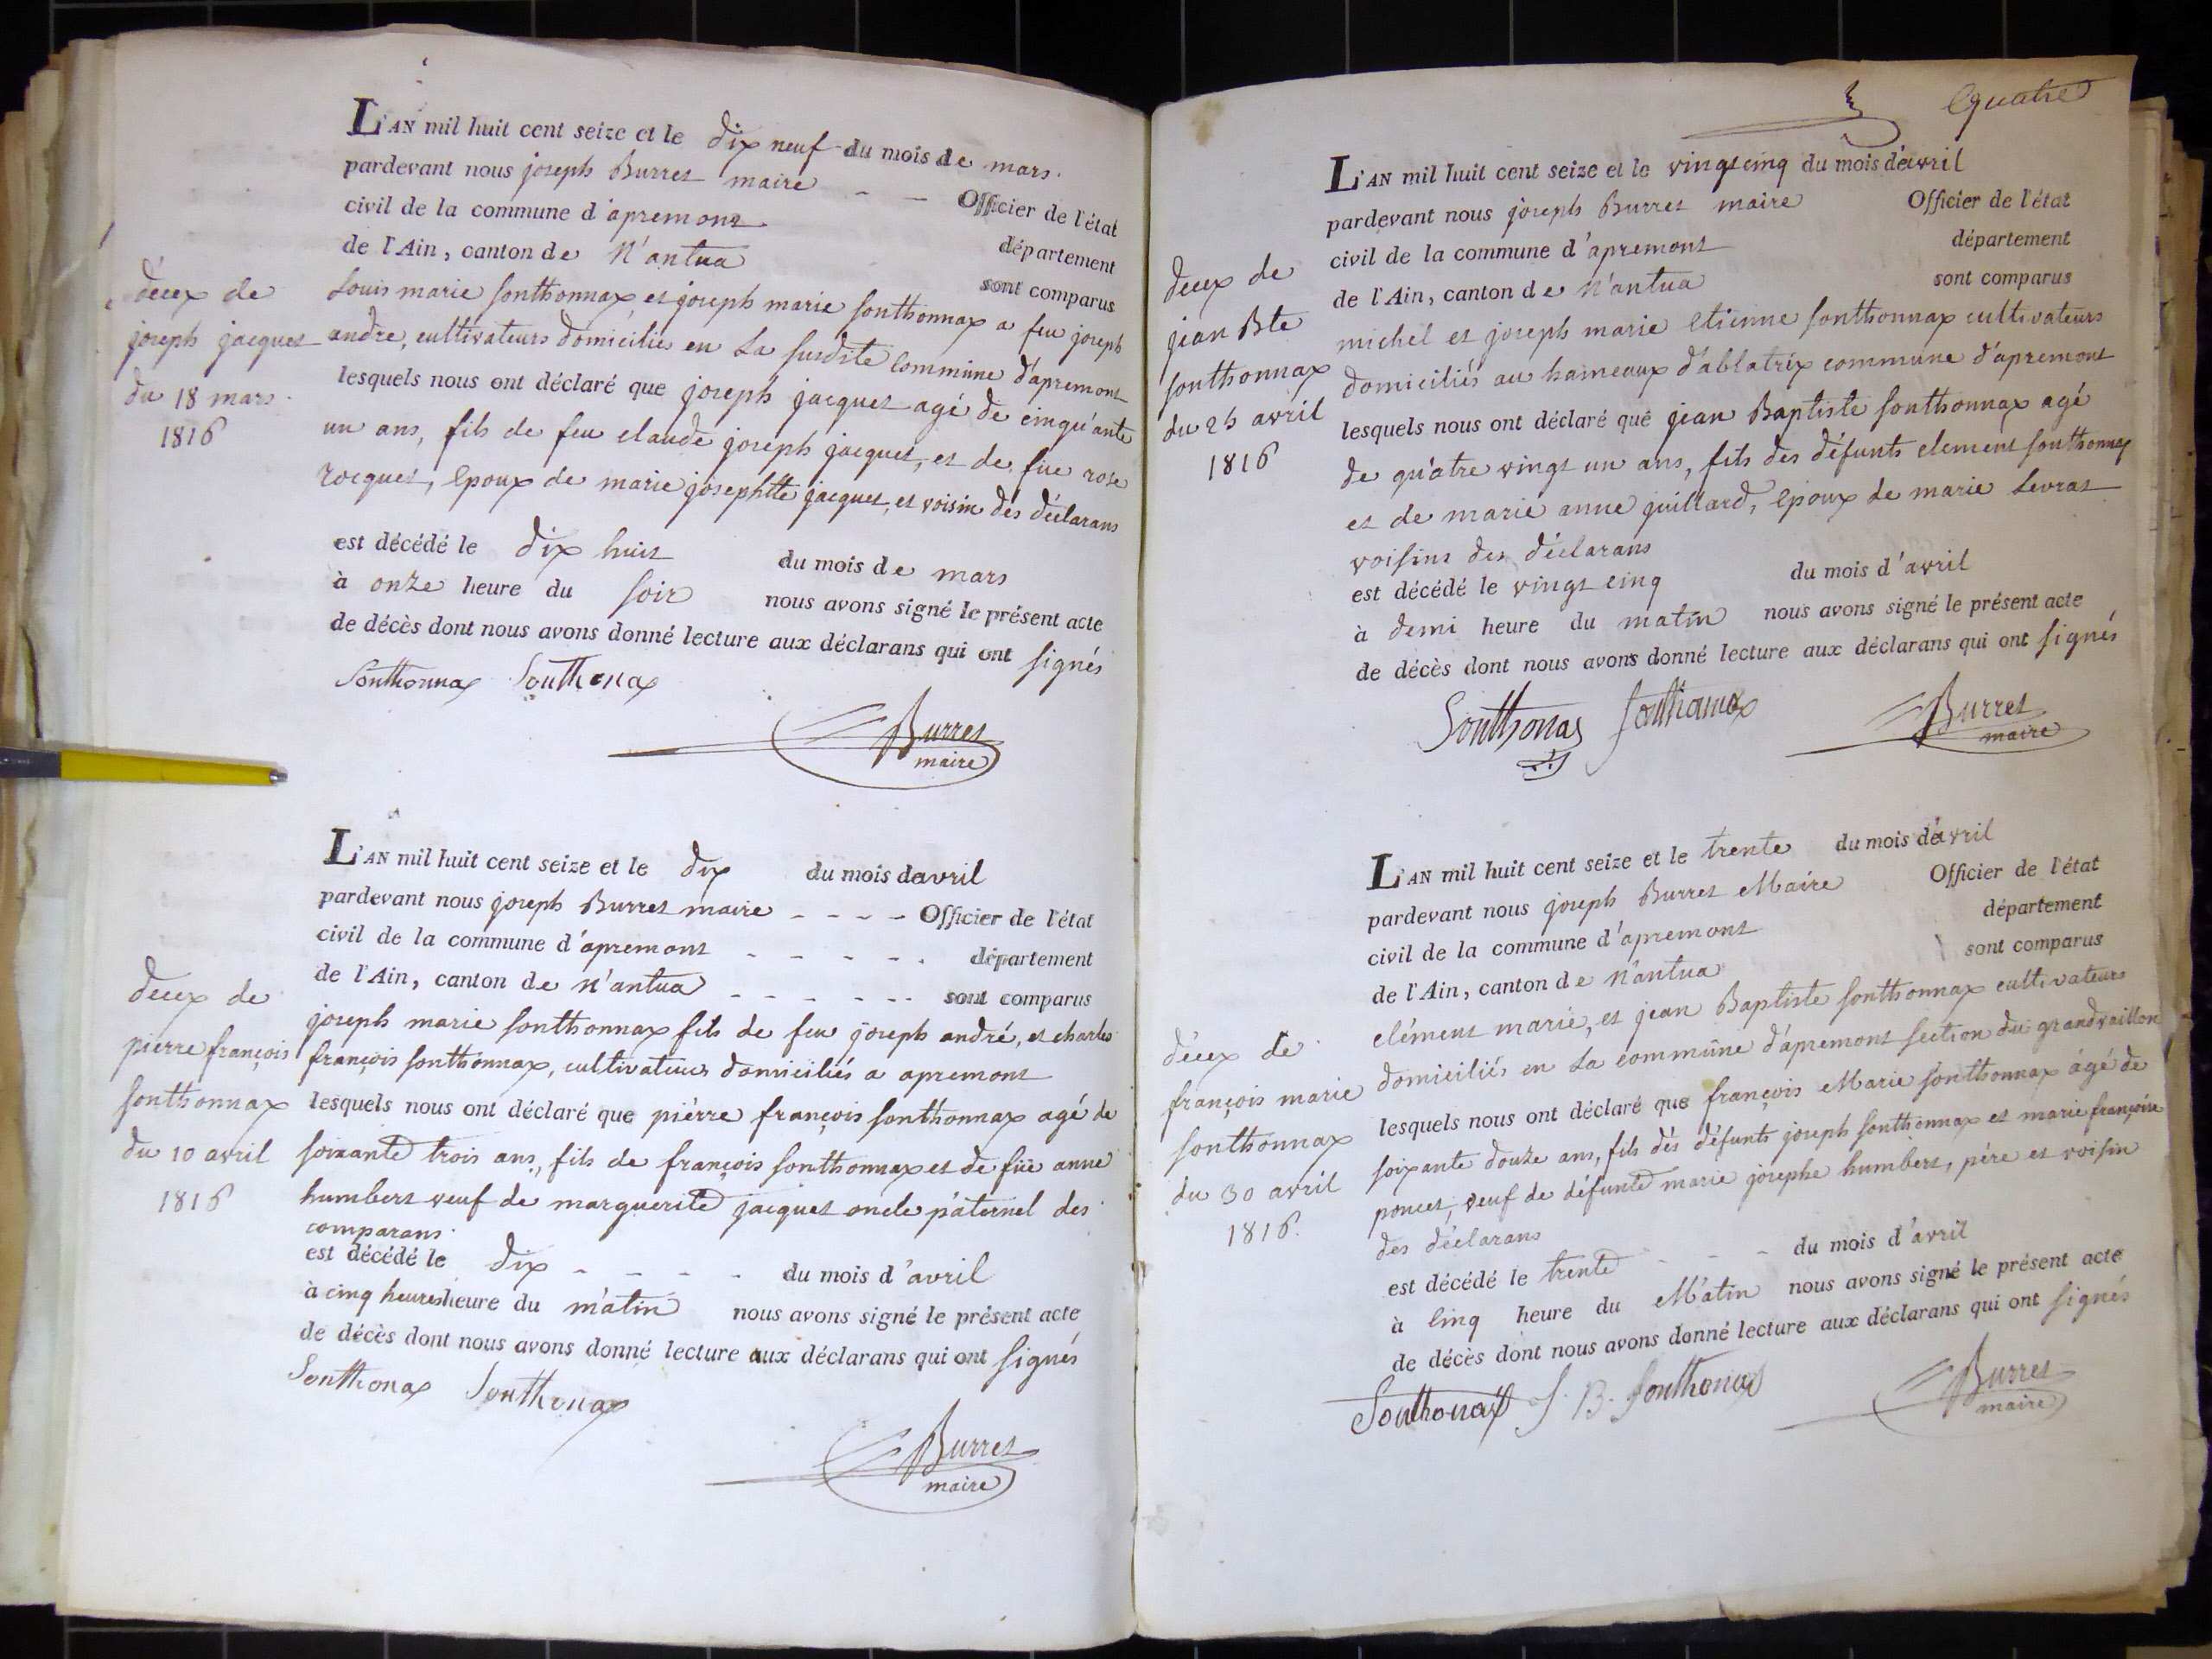 L'AN mil huit cent seize et le dix neuf du mois de mars.
pardevant nous joseph Burret maire - - Officier de l'état
civil de la commune d'apremont département
de l'Ain, canton de N'antua sont comparus
Louis marie sonthonnax, et joseph marie sonthonnax a feu joseph
andre, cultivateurs domiciliés en La susdite commune d'apremont
lesquels nous ont déclaré que joseph jacquet agé de cinqu'ante
un ans, fils de feu claude joseph jacquet, et de füe rose
rocquet, Epoux de marie josephtte jacquet, et voisin des déclarans
est décédé le dix huit du mois de mars
à onze heure du soir nous avons signé le présent acte
de décès dont nous avons donné lecture aux déclarans qui ont signés
Sonthonnax Sonthonax
Burret
maire
décex de
joseph jacquet
du 18 mars.
1816
L'AN mil huit cent seize et le dix du mois davril
pardevant nous joseph Burret maire - - - - Officier de l'état
civil de la commune d'apremont - - - - - département
de l'Ain, canton de N'antua - - - - - - sont comparus
joseph marie sonthonnax fils de feu joseph andré, et charles
françois sonthonnax, cultivateurs domiciliés a apremont
lesquels nous ont déclaré que pièrre françois sonthonnax agé de
soixante trois ans, fils de françois sonthonnax et de füe anne
humbert veuf de marguerite jacquet oncle páternel des
comparans
est décédé le dix - - - - du mois d'avril
à cinq heures heure du mâtin nous avons signé le présent acte
de décès dont nous avons donné lecture aux déclarans qui ont signés
Sonthonax Sonthonax
Burret
maire
décex de
pierre françois
sonthonnax
du 10 avril
1816
Quatre
L'AN mil huit cent seize et le vingt cinq du mois d'avril
pardevant nous joseph Burret maire Officier de l'état
civil de la commune d'apremont département
de l'Ain, canton de N'antua sont comparus
michel et joseph marie Etienne sonthonnax cultivateurs
domiciliés au hameaux d'ablatrix commune d'apremont
lesquels nous ont déclaré que jean Baptiste sonthonnax agé
de qu'atre vingt un ans, fils des défunts clement sonthonnax
et de marie anne juillard, Epoux de marie Levrat
voisins des déclarans
est décédé le vingt cinq du mois d'avril
à demi heure du matin nous avons signé le présent acte
de décès dont nous avons donné lecture aux déclarans qui ont signés
Sonthonax Sonthonnax
Burret
maire
décex de
jean Bte
sonthonnax
du 25 avril
1816
L'AN mil huit cent seize et le trente du mois d'avril
pardevant nous joseph Burret Maire Officier de l'état
civil de la commune d'apremont département
de l'Ain, canton de N'antua sont comparus
clément marie, et jean Baptiste sonthonnax cultivateurs
domiciliés en La commune d'apremont section du grandvaillon
lesquels nous ont déclaré que françois Marie sonthonnax ágé de
soixante douze ans, fils dés défunts joseph sonthonnax et marie françoise
poncet, veuf de défunte marie josephe humbert, père et voisin
des déclarans
est décédé le trente - - du mois d'avril
à Cinq heure du Mâtin nous avons signé le présent acte
de décès dont nous avons donné lecture aux déclarans qui ont signés
Sonthonax J. B. Sonthonax
Burret
maire
décex de
françois marie
sonthonnax
du 30 avril
1816.